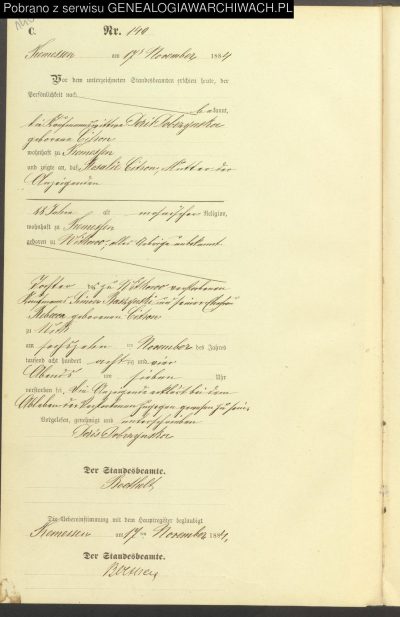 Pobrano z serwisu GENEALOGIAWARCHIWACH.PL
C.
Nr. 190
Tremessen am 17 November 1884
Vor dem unterzeichneten Standesbeamten erschien heute, der
Persönlichkeit nach
bekannt,
die Kaufmannswittwe Doris Dobrzynska
geborene Citron
wohnhaft zu Tremessen
und zeigte an, daß Rosalie Citron, Mutter der
Anzeigenden
88 Jahre alt mosaischer Religion,
wohnhaft zu Tremessen
geboren zu Witkowo, alles Uebrige unbekannt
Tochter des zu Witkowo verstorbenen
Kaufmanns Simon und seiner Ehefrau
Rebecca geborenen Citron
zu
am sechszehn ten November des Jahres
tausend acht hundert achtzig und vier
Abends um sieben Uhr
verstorben sei. Die Anzeigende erklärt bei dem
Ableben der Verstorbenen zugegen gewesen zu sein.
Vorgelesen, genehmigt und unterschrieben
Doris Dobrzynska
Der Standesbeamte.
Die Uebereinstimmung mit dem Hauptregister beglaubigt
Tremessen am 17 ten November 1884.
Der Standesbeamte.